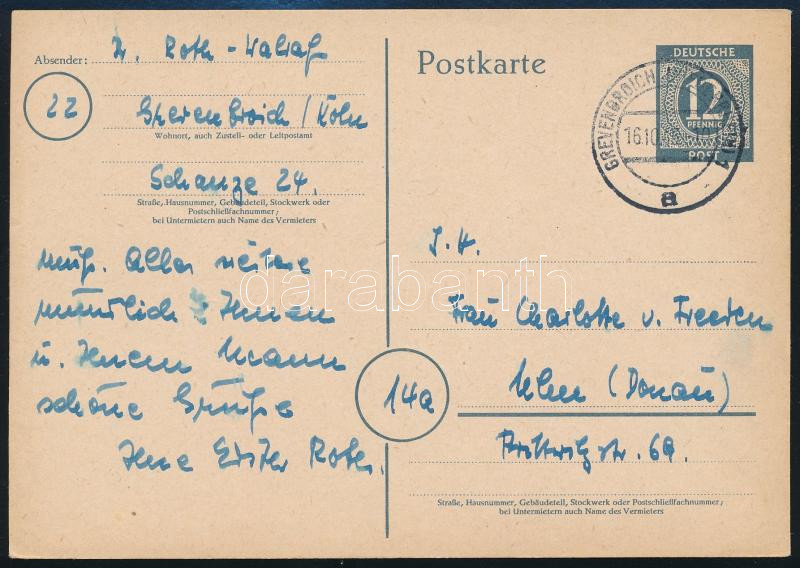 Absender: Dr. Roth-Walraf
22
Grevenbroich / Köln
Wohnort, auch Zustell- oder Leitpostamt
Schanze 24.
Straße, Hausnummer, Gebäudeteil, Stockwerk oder
Postschließfachnummer;
bei Untermietern auch Name des Vermieters
muß. Alles weitere
mündlich. Ihnen
u. Ihrem Mann
schöne Grüße
Ihre Roth.
Postkarte
DEUTSCHE
12
PFENNIG
POST
GREVENBROICH
16.10
a
Frau Charlotte v. Freeden
14a
Ulm (Donau)
Prittwitzstr. 69.
Straße, Hausnummer, Gebäudeteil, Stockwerk oder Postschließfachnummer;
bei Untermietern auch Name des Vermieters
darabanth